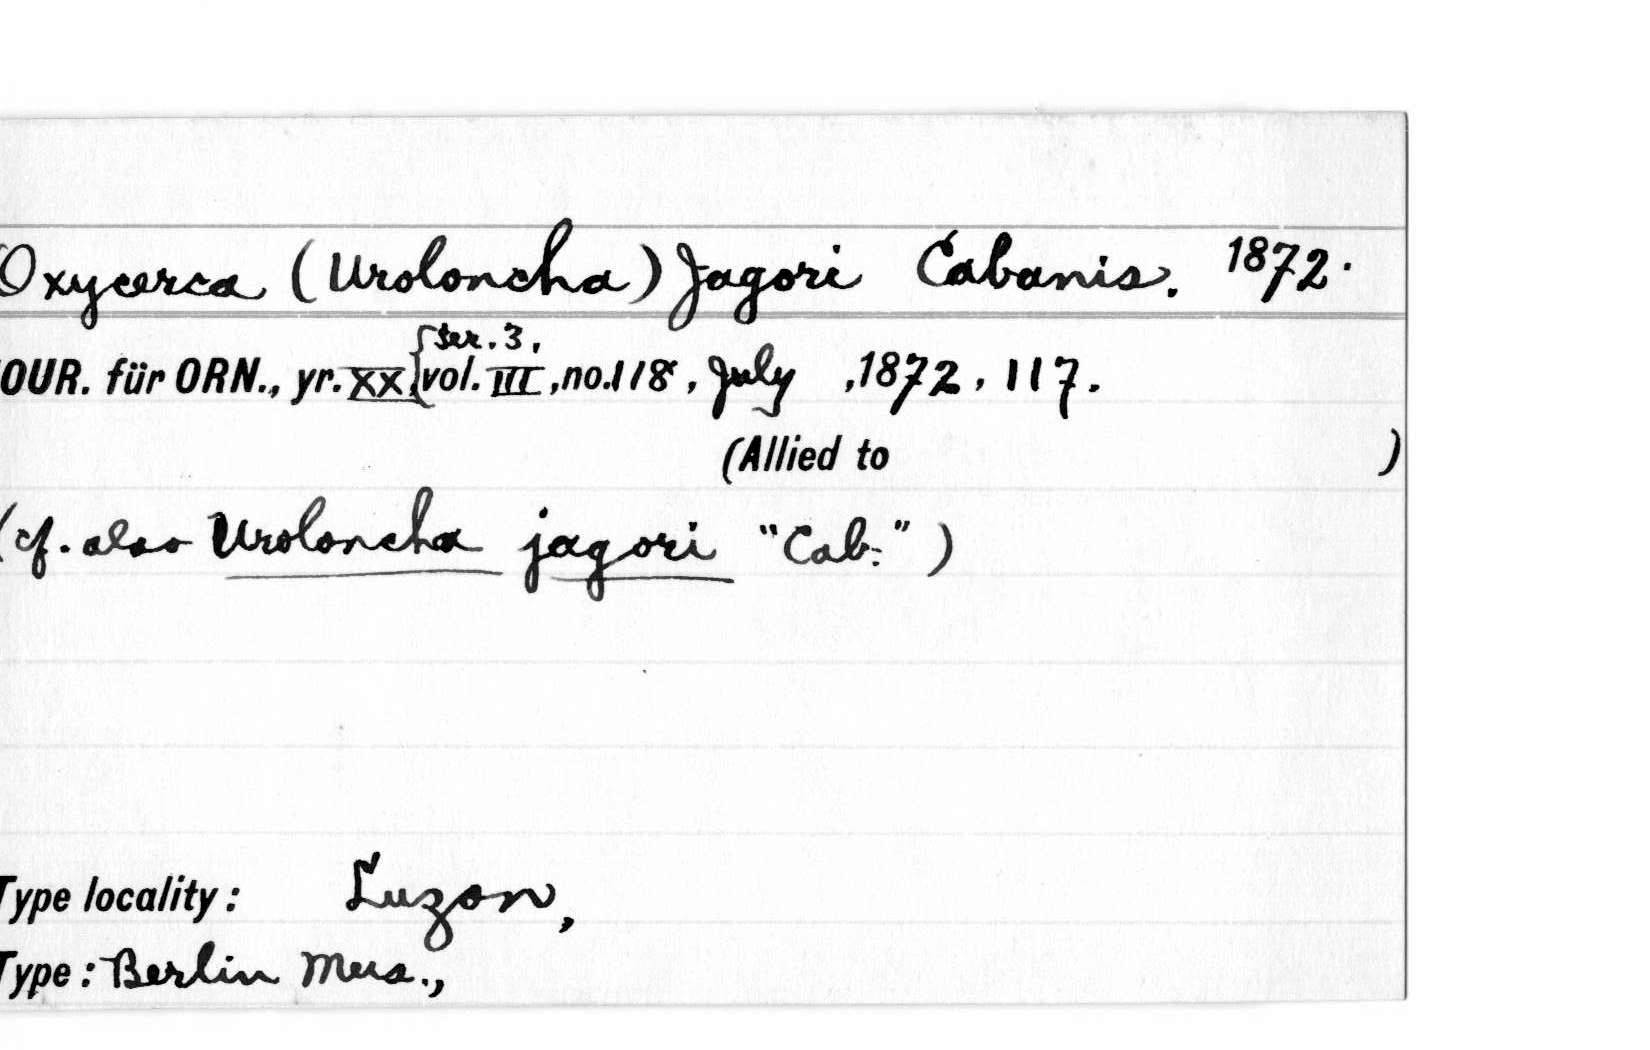 Oxycerca (Uroloncha) Jagori Cabanis. 1872.
{ser. 3,
OUR. für ORN., yr. XX, vol. III, no. 118, July ,1872, 117.
(Allied to )
(cf. also Uroloncha jagori "Cab." )
Type locality: Luzon,
Type: Berlin Mus.,